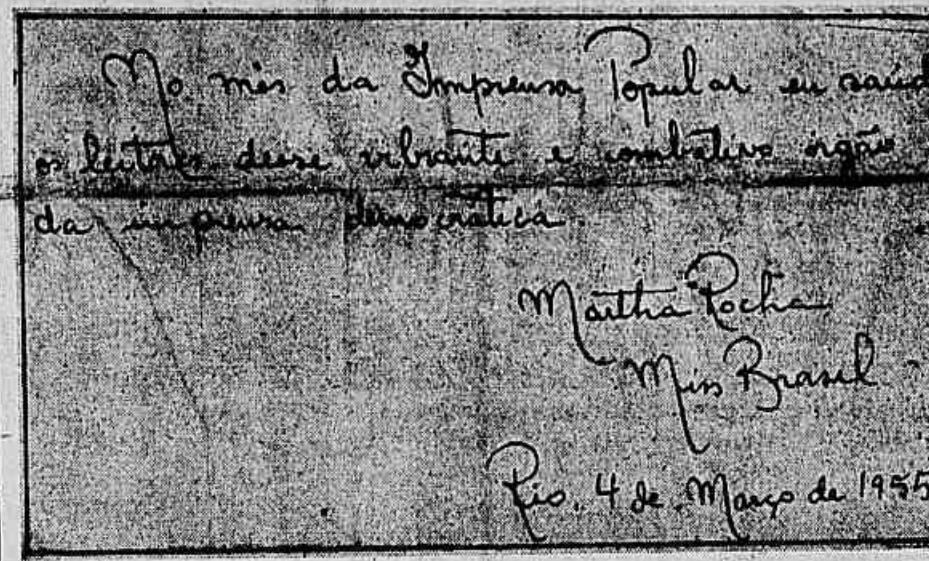 No mês da Imprensa Popular eu saúd
os leitores desse vibrante e combativo orgão
da imprensa democrática.
Martha Rocha
Miss Brasil
Rio, 4 de Março de 1955